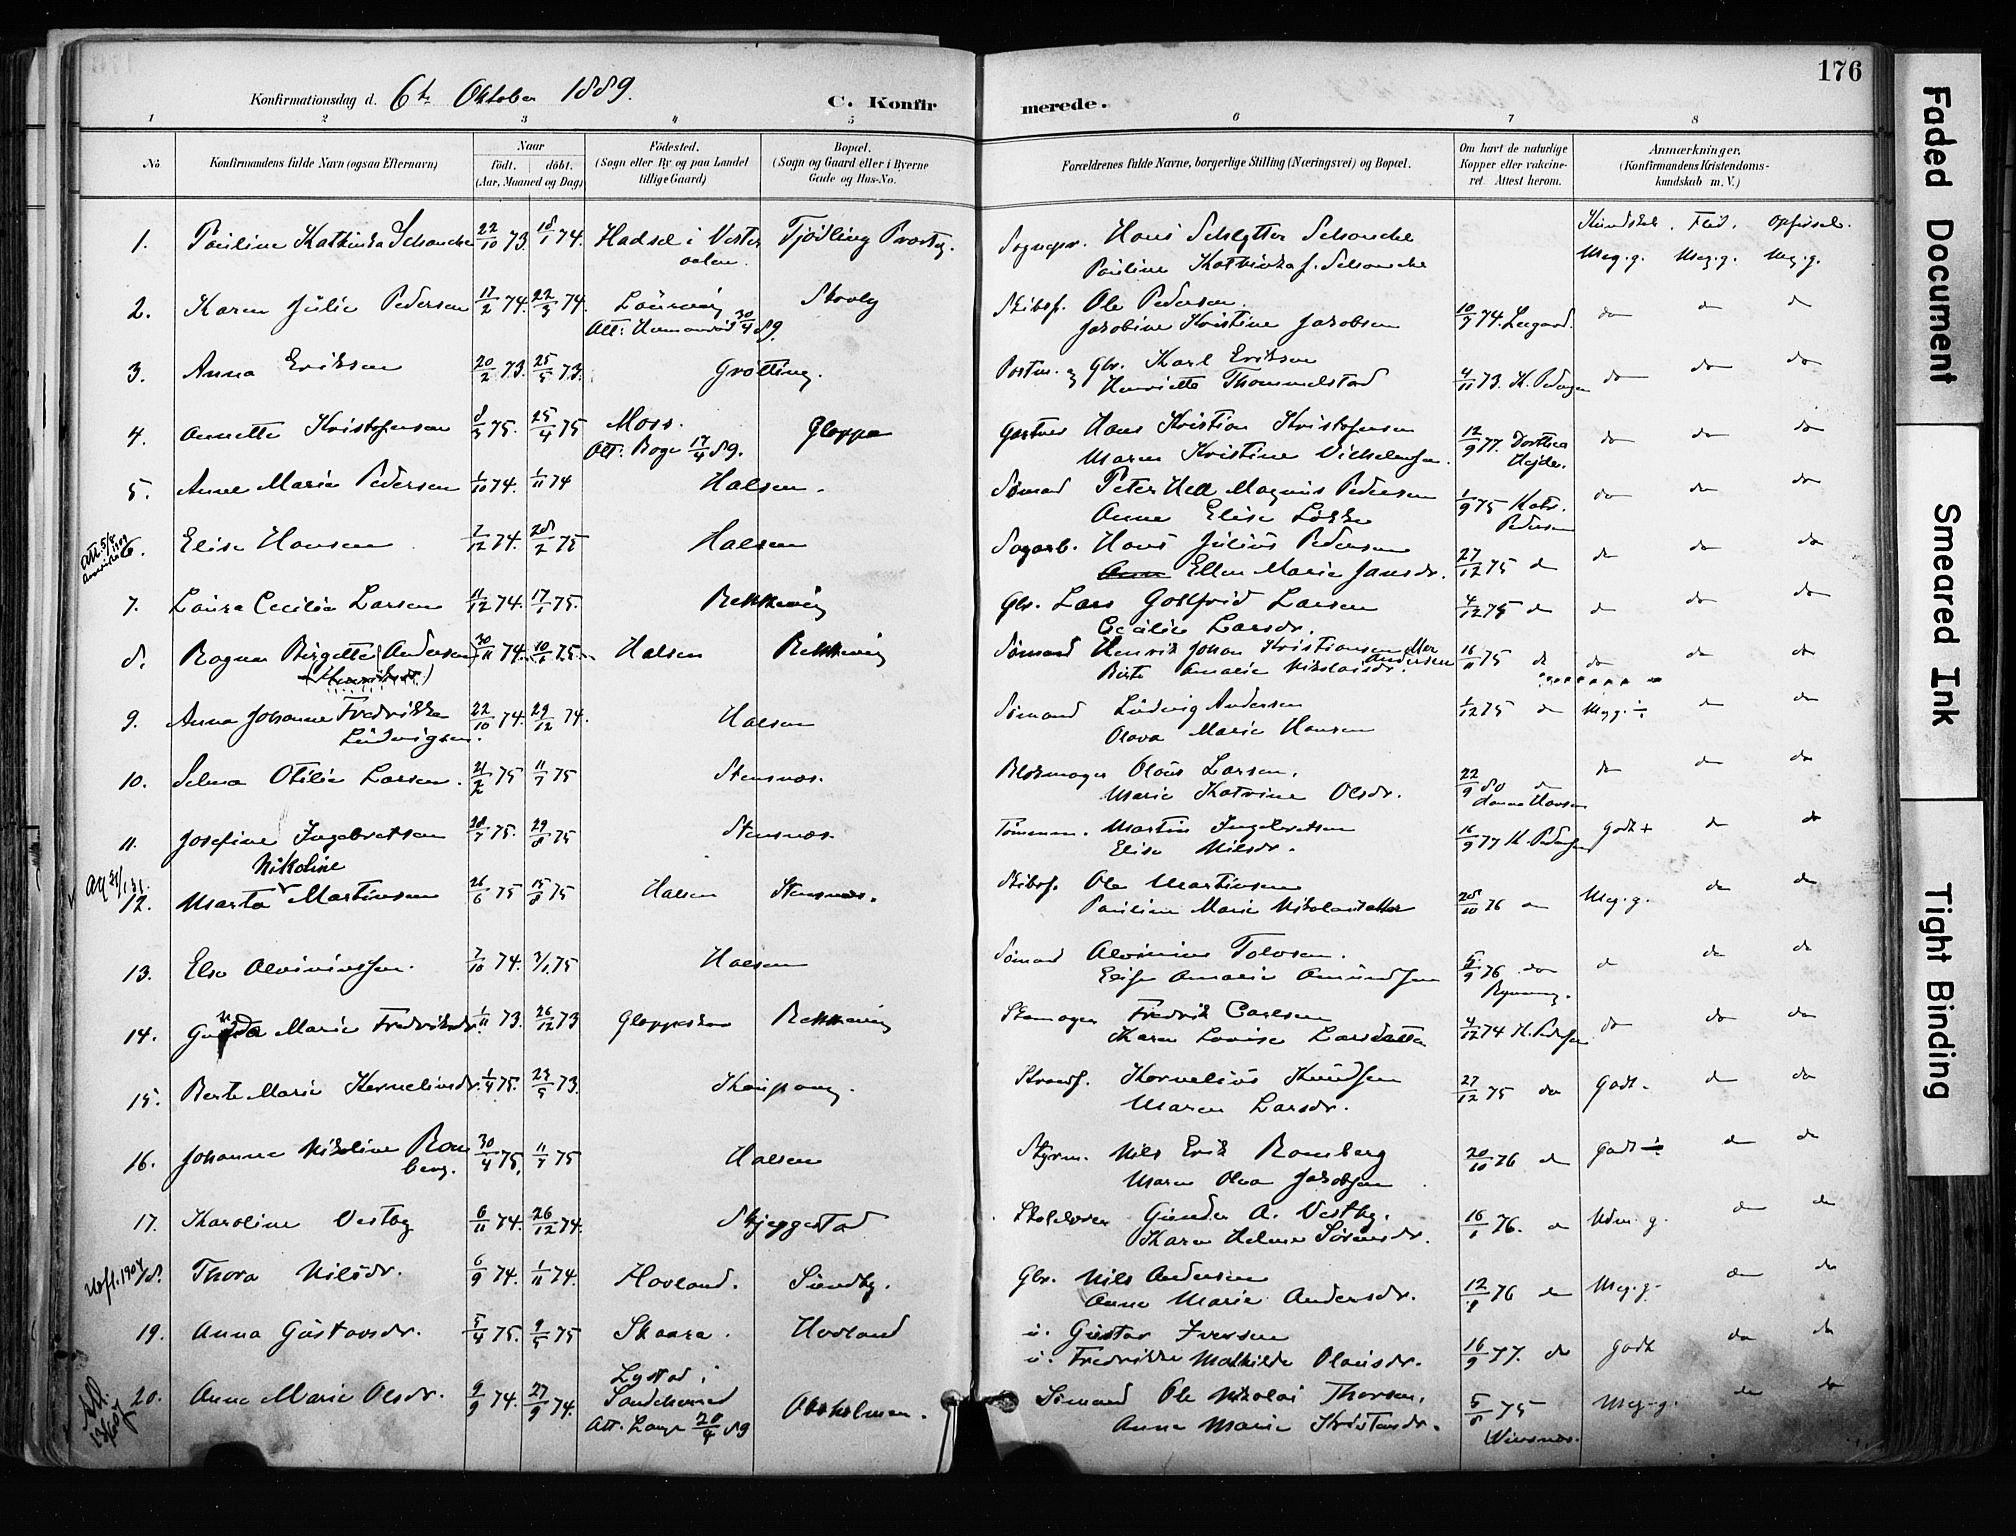 176
Konfirmationsdag d. 6te Oktober 1889.
C. Konfirmerede.
1 2 3 4 5 6 7 8
No. Konfirmandens fulde Navn (ogsaa Efternavn) Naar født. døbt. (Aar, Maaned og Dag) Fødested. (Sogn eller By og paa Landet tillige Gaard) Bopæl. (Sogn og Gaard eller i Byerne Gade og Hus-No. Forældrenes fulde Navne, borgerlige Stilling (Næringsvei) og Bopæl. Om havt de naturlige Kopper eller vakcineret. Attest herom. Anmærkninger. (Konfirmandens Kristendomskundskab m. V.)
Kundskab. Flid. Opførsel.
1. Pauline Kathinka Schanche 22/10 73. 18/1 74. Hadsel i Vesteraalen. Tjødling Prestg. Sognepr. Hans Schlytter Schanche
Pauline Kathinka f. Schanche Meg. g. Meg. g. Meg. g.
2. Karen Julie Pedersen 17/2 74. 22/3 74. Laurvig Skovly Skibsf. Ole Pedersen.
Att: 30/4 89. Jakobine Kristine Jakobsen 10/7 74. do do do
3. Anna Eriksen 20/2 73. 25/5 73. Grøtting. Postm. og Gbr. Karl Eriksen
Henriette Thommelstad 4/11 73. K. Pedersen do do do
4. Annette Kristofersen 8/3 75. 25/4 75 Moss. Gloppe Gartner Hans Kristian Kristofersen
Att: Boge 17/4 89. Maren Kristine Vilhelmsen. 12/9 77. Dorthea Hejde. do do do
5. Anne Marie Pedersen 1/10 74. 1/11 74 Halsen. Sømand Peter Hell Magnus Pedersen
Anne Elise Løkke 1/9 75 Kat. Pedersen do do do
6. Elise Hansen 7/12 74. 28/2 75 Halsen Sagarb. Hans Julius Pedersen
Ellen Marie Jansdr. 27/12 75 do do do do
7. Laura Cecilie Larsen 11/12 74. 17/1 75. Rekkevig Gbr. Lars Gottfrid Larsen
Cecilie Larsdr. 4/12 75 do do do do
8. Ragna Birgette (Andersen) 30/11 74. 10/1 75. Halsen Rekkevig Sømand Henrik Johan Kristiansen
(Henriksdr.) Birte Amalie Nikolaisdr. Andersen 16/11 75 do do do do
9. Anna Johanne Fredrikke 22/10 74. 29/12 74. Halsen Sømand Ludvig Andersen
Ludvigsen. Olava Marie Hansen 1/12 75 do Meg. g. ÷ do do
10. Selma Otilie Larsen. 21/2 75 11/7 75 Stensnæs. Blokmager Olaus Larsen.
Marie Katrine Olsdr. 22/9 80 do Hanna Hansen do do do
11. Josefine Ingebretsen 28/7 75. 29/8 75 Stensnæs. Tømmerm. Martin Ingebretsen
Elise Nilsdr. 16/9 77 K. Pedersen Godt + do do
Nikoline
12. Marta Martinsen 26/6 75 15/8 75 Halsen Stensnæs. Skibsf. Ole Martinsen
Pauline Marie Nikolaidatter 28/10 76 do Meg. g. do do
13. Else Alvinussen. 7/10 74. 3/1 75 Halsen Sømand Alvinius Tolvsen.
Elise Amalie Amundsen 5/9 76 do do do do
14. Gunda Marie Fredriksdr. 1/11 73. 26/12 73 Gloppeskov Rekkevig Skomager Fredrik Carlsen
Karen Lovise Larsdatter 4/12 74 K. Pedersen do do do
15. Berte Marie Korneliusdr. 1/4 75. 23/5 73. Kaupang. Strands. Kornelius Knudsen
Maren Larsdr. 27/12 75 do Godt. do do
16. Johanne Nikoline Romberg. 30/4 75. 11/7 75 Halsen Styrm. Nils Erik Romberg
Maren Olea Jakobsen 20/10 76 do Godt ÷ do do
17. Karoline Vestby 6/11 74. 26/12 74. Skjeggestad Skolelærer Gunder A. Vestby.
Karen Helene Sørensdr. 16/1 76. do Udm. g. do do
Udfl. 1904
18. Thora Nilsdr. 6/9 74. 1/11 74. Hovland. Sundby. Gbr. Nils Andersen
Anne Marie Andersdr. 12/9 76 do Meg. g. do do
19. Anna Gustavsdr. 5/4 75. 9/5 75 Skaara. Hovland u. Gustav Iversen
u. Fredrikke Mathilde Olausdr. 16/9 77. do Godt do do
20. Anne Marie Olsdr. 9/9 74. 27/9 74. Lystad i Sandeherred Oksholmen. Sømand Ole Nikolai Thorsen.
Att. Lange 20/4 89 Anne Marie Kristensdr. 5/8 75 Meg. g. do do
Faded Document
Smeared Ink
Tight Binding